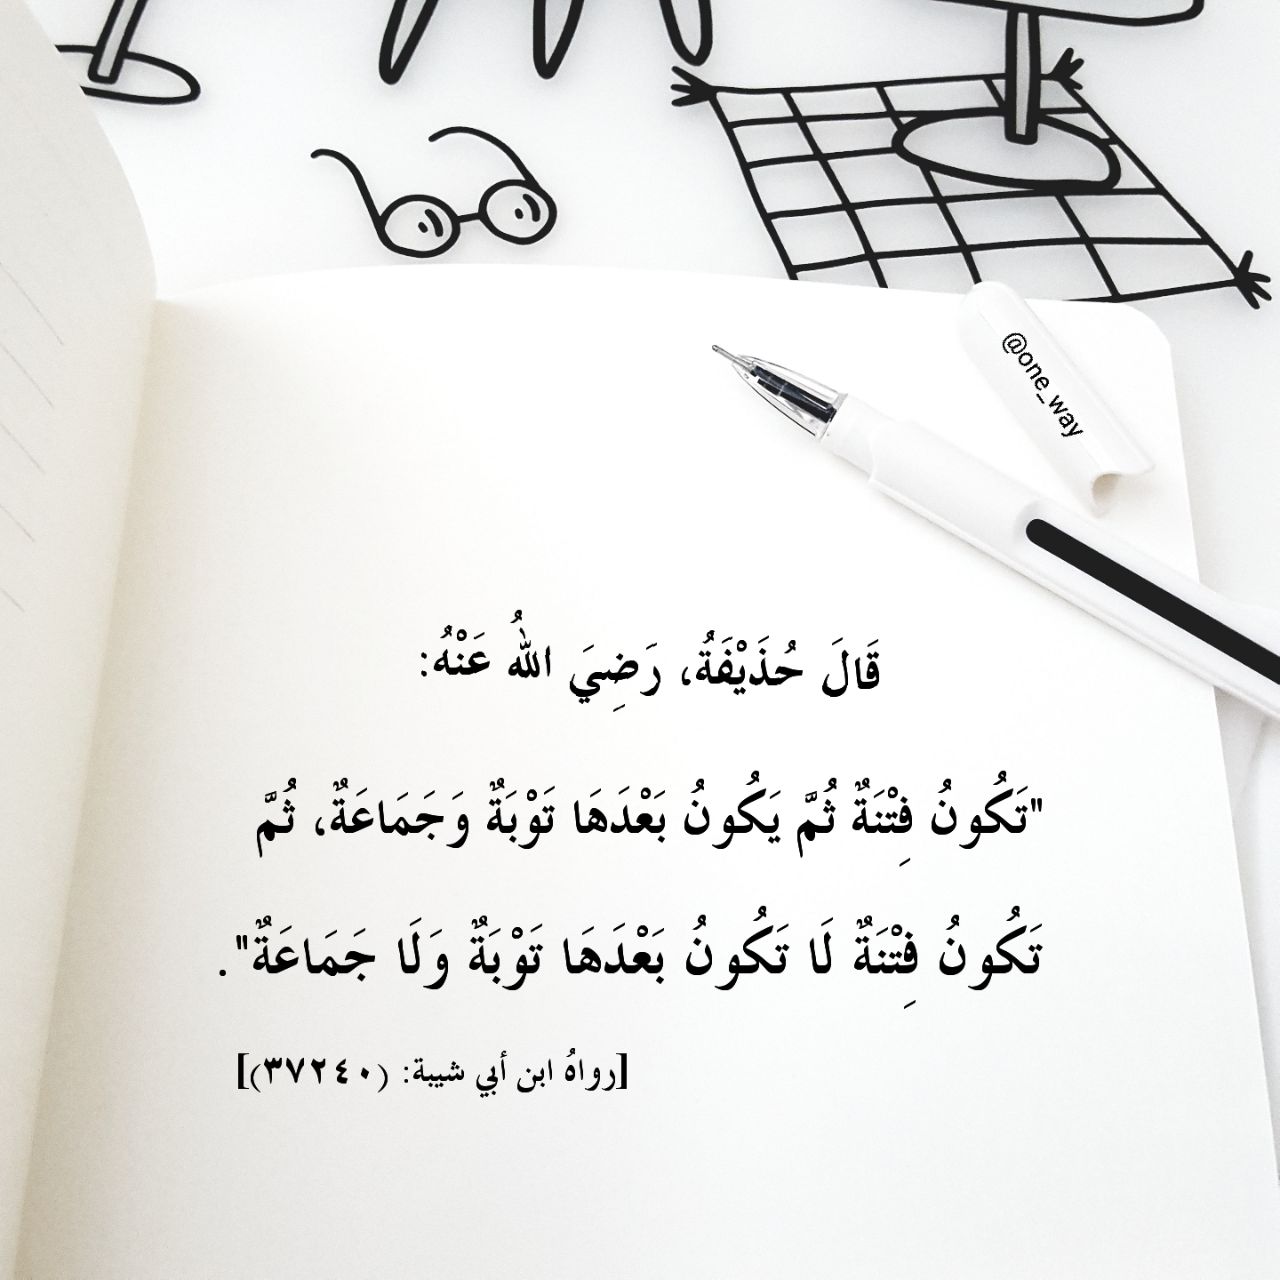 @one_way
قَالَ حُذَيْفَةُ، رَضِيَ اللهُ عَنْهُ:
"تَكُونُ فِتْنَةٌ ثُمَّ يَكُونُ بَعْدَهَا تَوْبَةٌ وَجَمَاعَةٌ، ثُمَّ
تَكُونُ فِتْنَةٌ لَا تَكُونُ بَعْدَهَا تَوْبَةٌ وَلَا جَمَاعَةٌ".
[رواهُ ابن أبي شيبة: (٣٧٢٤٠)]